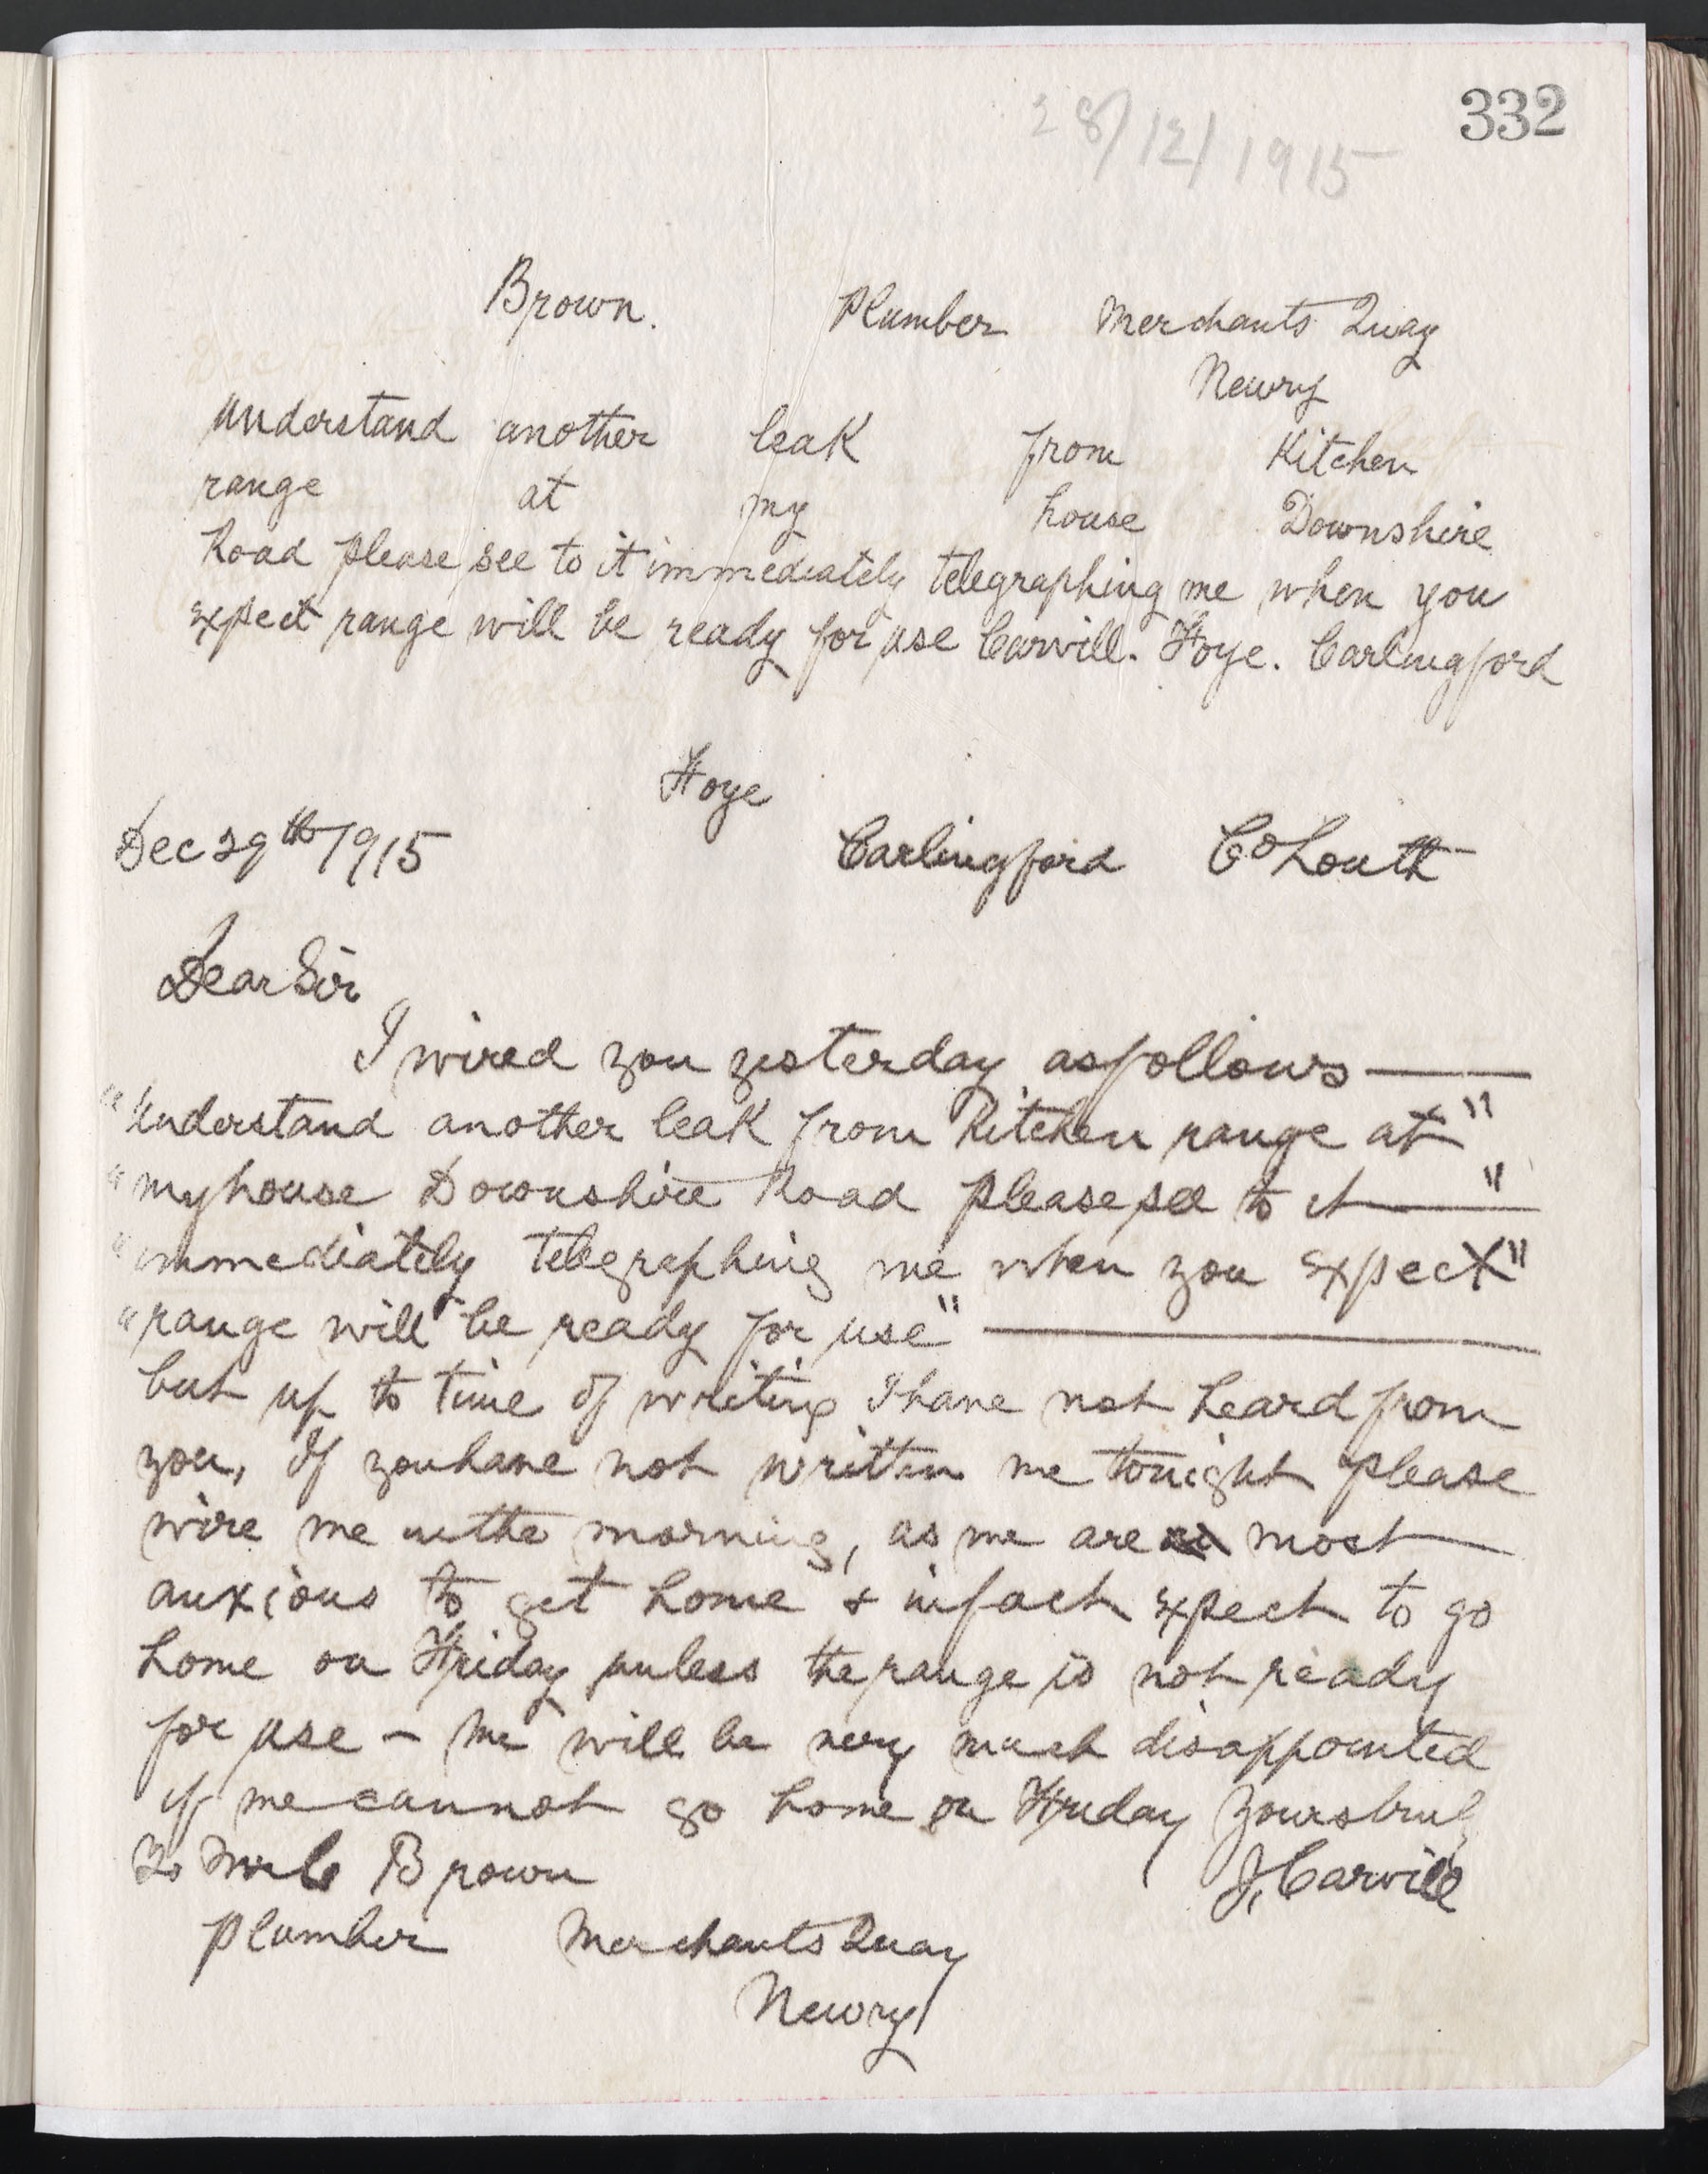 332
28/12/1915
Brown. Plumber Merchants Quay
Newry
Understand another leak from Kitchen
range at my house Downshire
Road please see to it immediately telegraphing me when you
expect range will be ready for use Carvill. Foye. Carlingford
Foye
Dec 29th 1915 Carlingford Co Louth
Dear Sir
I wired you yesterday as follows —
"Understand another leak from Kitchen range at"
"my house Downshire Road please see to it — "
"immediately telegraphing me when you expect"
"range will be ready for use" —
but up to time of writing I have not heard from
you, If you have not written me tonight please
wire me in the morning, as we are most
anxious to get home & in fact expect to go
home on Friday unless the range is not ready
for use - We will be very much disappointed
if we cannot go home on Friday Yours truly
To Brown J. Carvill
Plumber Merchants Quay
Newry